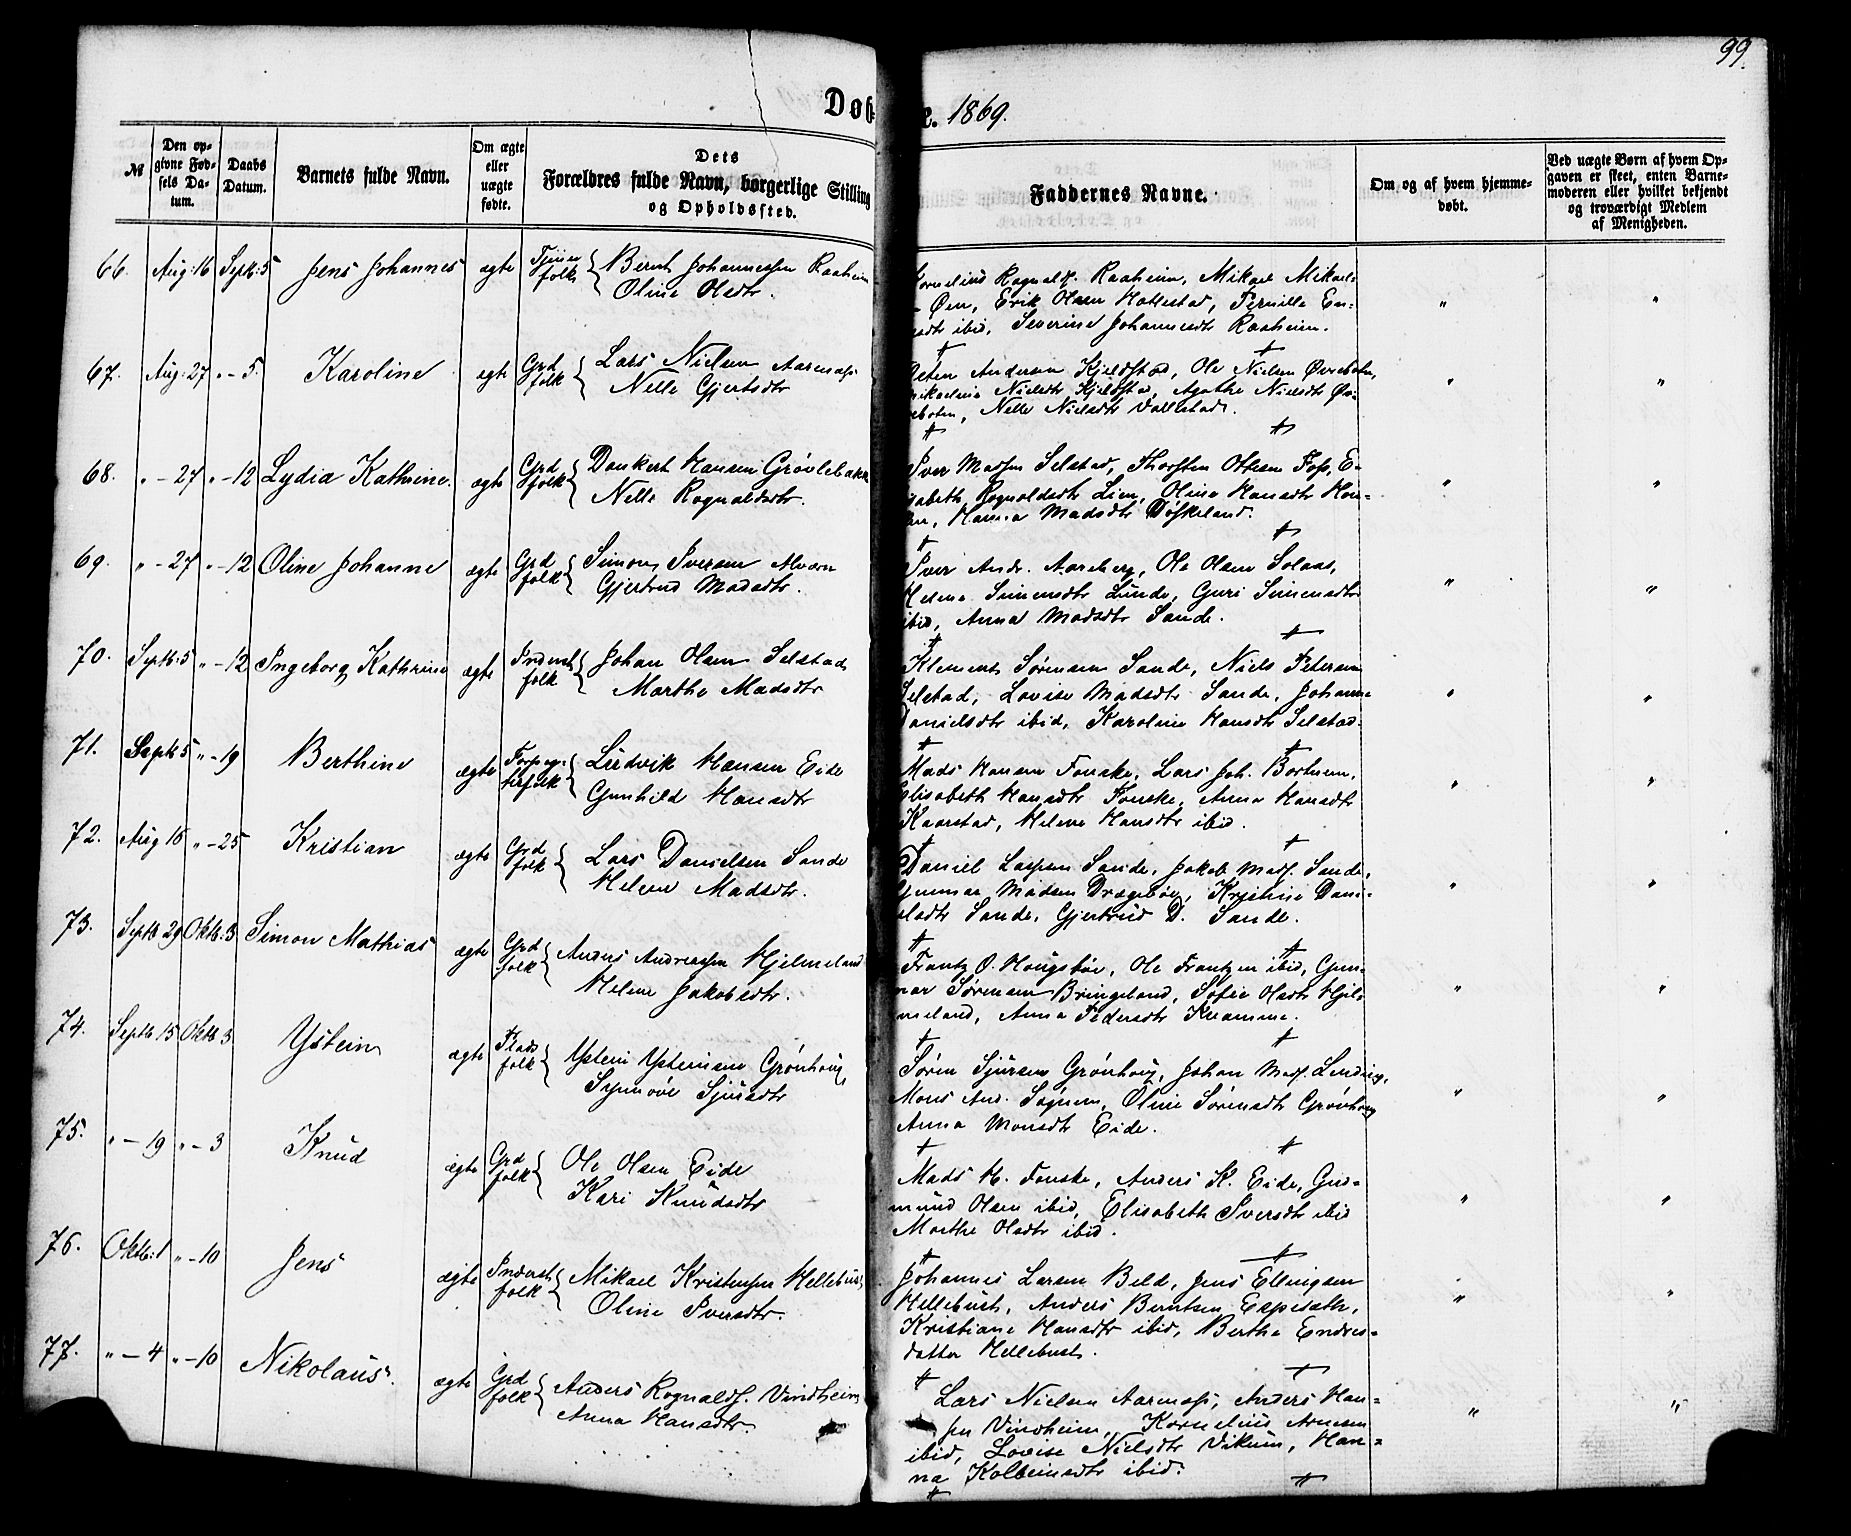 99.
Døb
e. 1869.
№
Den opgivne Fødsels Datum.
Daabs Datum.
Barnets fulde Navn.
Om ægte eller uægte fødte.
Dets Forældres fulde Navn, borgerlige Stilling og Opholdssted.
Faddernes Navne.
Om og af hvem hjemmedøbt.
Ved uægte Børn af hvem Opgaven er skeet, enten Barnemoderen eller hvilket bekjendt og troværdigt Medlem af Menigheden.
66. Aug: 16 Septb: 5 Jens Johannes ægte Tjenerfolk { Bernt Johannessen Raaheim
Oline Olsdtr.
Kornelius Rognaldss. Raaheim, Mikael Mikaels-
Øen, Erik Olsen Hattestad, Pernille En-
sdtr ibid, Severine Johannesdtr Raaheim.
" "
67. Aug: 27 " - 5. Karoline egte Grdfolk { Lars Nielsen Aarenæss
Nelle Gjertsdtr
Peten Andersen Kjeldstad, Ole Nielsen Øvreboten,
Mikaeline Nielsdtr Kjeldstad, Agathe Nielsdtr Øv-
reboten, Nelle Nielsdtr Vallestad.
" "
68. " - 27 " - 12 Lydia Kathrine. ægte Grdfolk { Dankert Hansen Grøvlebakk
Nelle Rognaldsdtr.
Iver Madsen Selstad, Thorsten Ottesen Foss, E-
isabeth Rognaldsdtr Lien, Oline Hansdtr Hou-
an, Hanna Madsdtr Døskeland.
" "
69. " - 27 " - 12 Oline Johanne ægte Grdfolk { Simon Iversen Alvorn
Gjertrud Madsdtr.
Iver Andr. Aareberg, Ole Olsen Solaas,
Helene Simensdtr Lunde, Guri Simensdtr
ibid, Anna Madsdtr Sande.
" "
70. Septb: 5 " - 12 Ingeborg Kathrine ægte Inderstfolk { Johan Olsen Selstad
Marthe Madsdtr
Klement Sørensen Sande, Niels Petersen
Selstad, Lovise Madsdtr Sande, Johanne
Danielsdtr ibid, Karoline Hansdtr Selstad.
" "
71. Septb: 5 " - 19 Berthine ægte Forpagterfolk { Ludvik Hansen Eide
Gunhild Hansdtr
Mads Hansen Fonske, Lars Joh. Bortnem,
Elisabeth Hansdtr Fonske, Anna Hansdtr
Kaarstad, Helene Hansdtr ibid.
" "
72. Aug 15 " - 25 Kristian ægte Grdfolk { Lars Danielsen Sande
Helene Madsdtr.
Daniel Larsen Sande, Jakob Mads. Sande,
Gunnar Madsen Dragebøe, Kristine Dani-
elsdtr Sande, Gjertrud D. Sande.
" "
73. Septb 29 Oktb: 3 Simon Mathias ægte Grdfolk { Anders Andreassen Hjelmeland
Helene Jakobsdtr.
Frantz O. Hougsbøe, Ole Frantzen ibid, Gun-
nar Sørensen Bringeland, Sofie Olsdtr Hjel-
meland, Anna Pedersdtr Kvamme.
" "
74. Septb 15 Oktb 3 Ystein ægte Pladsfolk { Ystein Ysteinsen Grønhoug
Synnøve Sjursdtr
Søren Sjursen Grønhoug, Johan Mads.
Mons And. Søgnen, Oline Sørensdtr Grønhoug
Anna Monsdtr Eide.
" "
75. " - 19 " - 3 Knud ægte Grdfolk { Ole Olsen Eide
Kari Knudsdtr
Mads H. Fonske, Anders K. Eide, Gud-
mund Olsen ibid, Elisabeth Iversdtr ibid
Marthe Olsdtr ibid.
" "
76. Oktb: 1 " - 10 Jens ægte Inderstfolk { Mikael Kristensen Hellebust
Oline Iversdtr.
Johannes Larsen Beld, Jens Ellingsen
Hellebust, Anders Berntsen Espesæth,
Kristiane Hansdtr ibid, Berthe Endres-
datter Hellebust.
" "
77. " - 4 " - 10 Nikolaus. ægte Grdfolk { Anders Rognaldss. Vindheim
Anna Hansdtr.
Lars Nielsen Aarenæss, Anders Han-
sen Vindheim, Kornelius Arnesen
ibid, Lovise Nielsdtr Vikum, Han-
na Kolbeinsdtr ibid.
" "